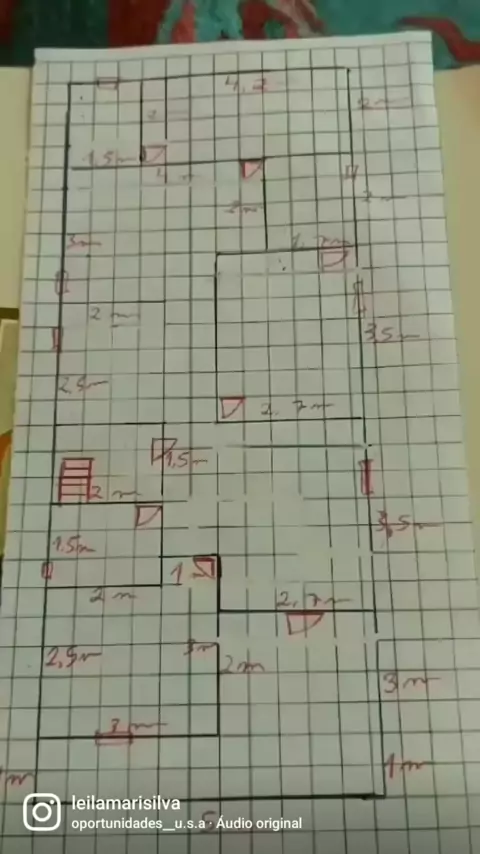 4,2
2m
1,5m
4m
2m
2m
1,7m
3m
2m
3,5m
2,5m
2,7m
1,5m
2m
3,5m
1,5m
1m
2m
2,7m
2,9m
3m
2m
3m
3m
1m
m
5
leilamarisilva
oportunidades__u.s.a · Áudio original